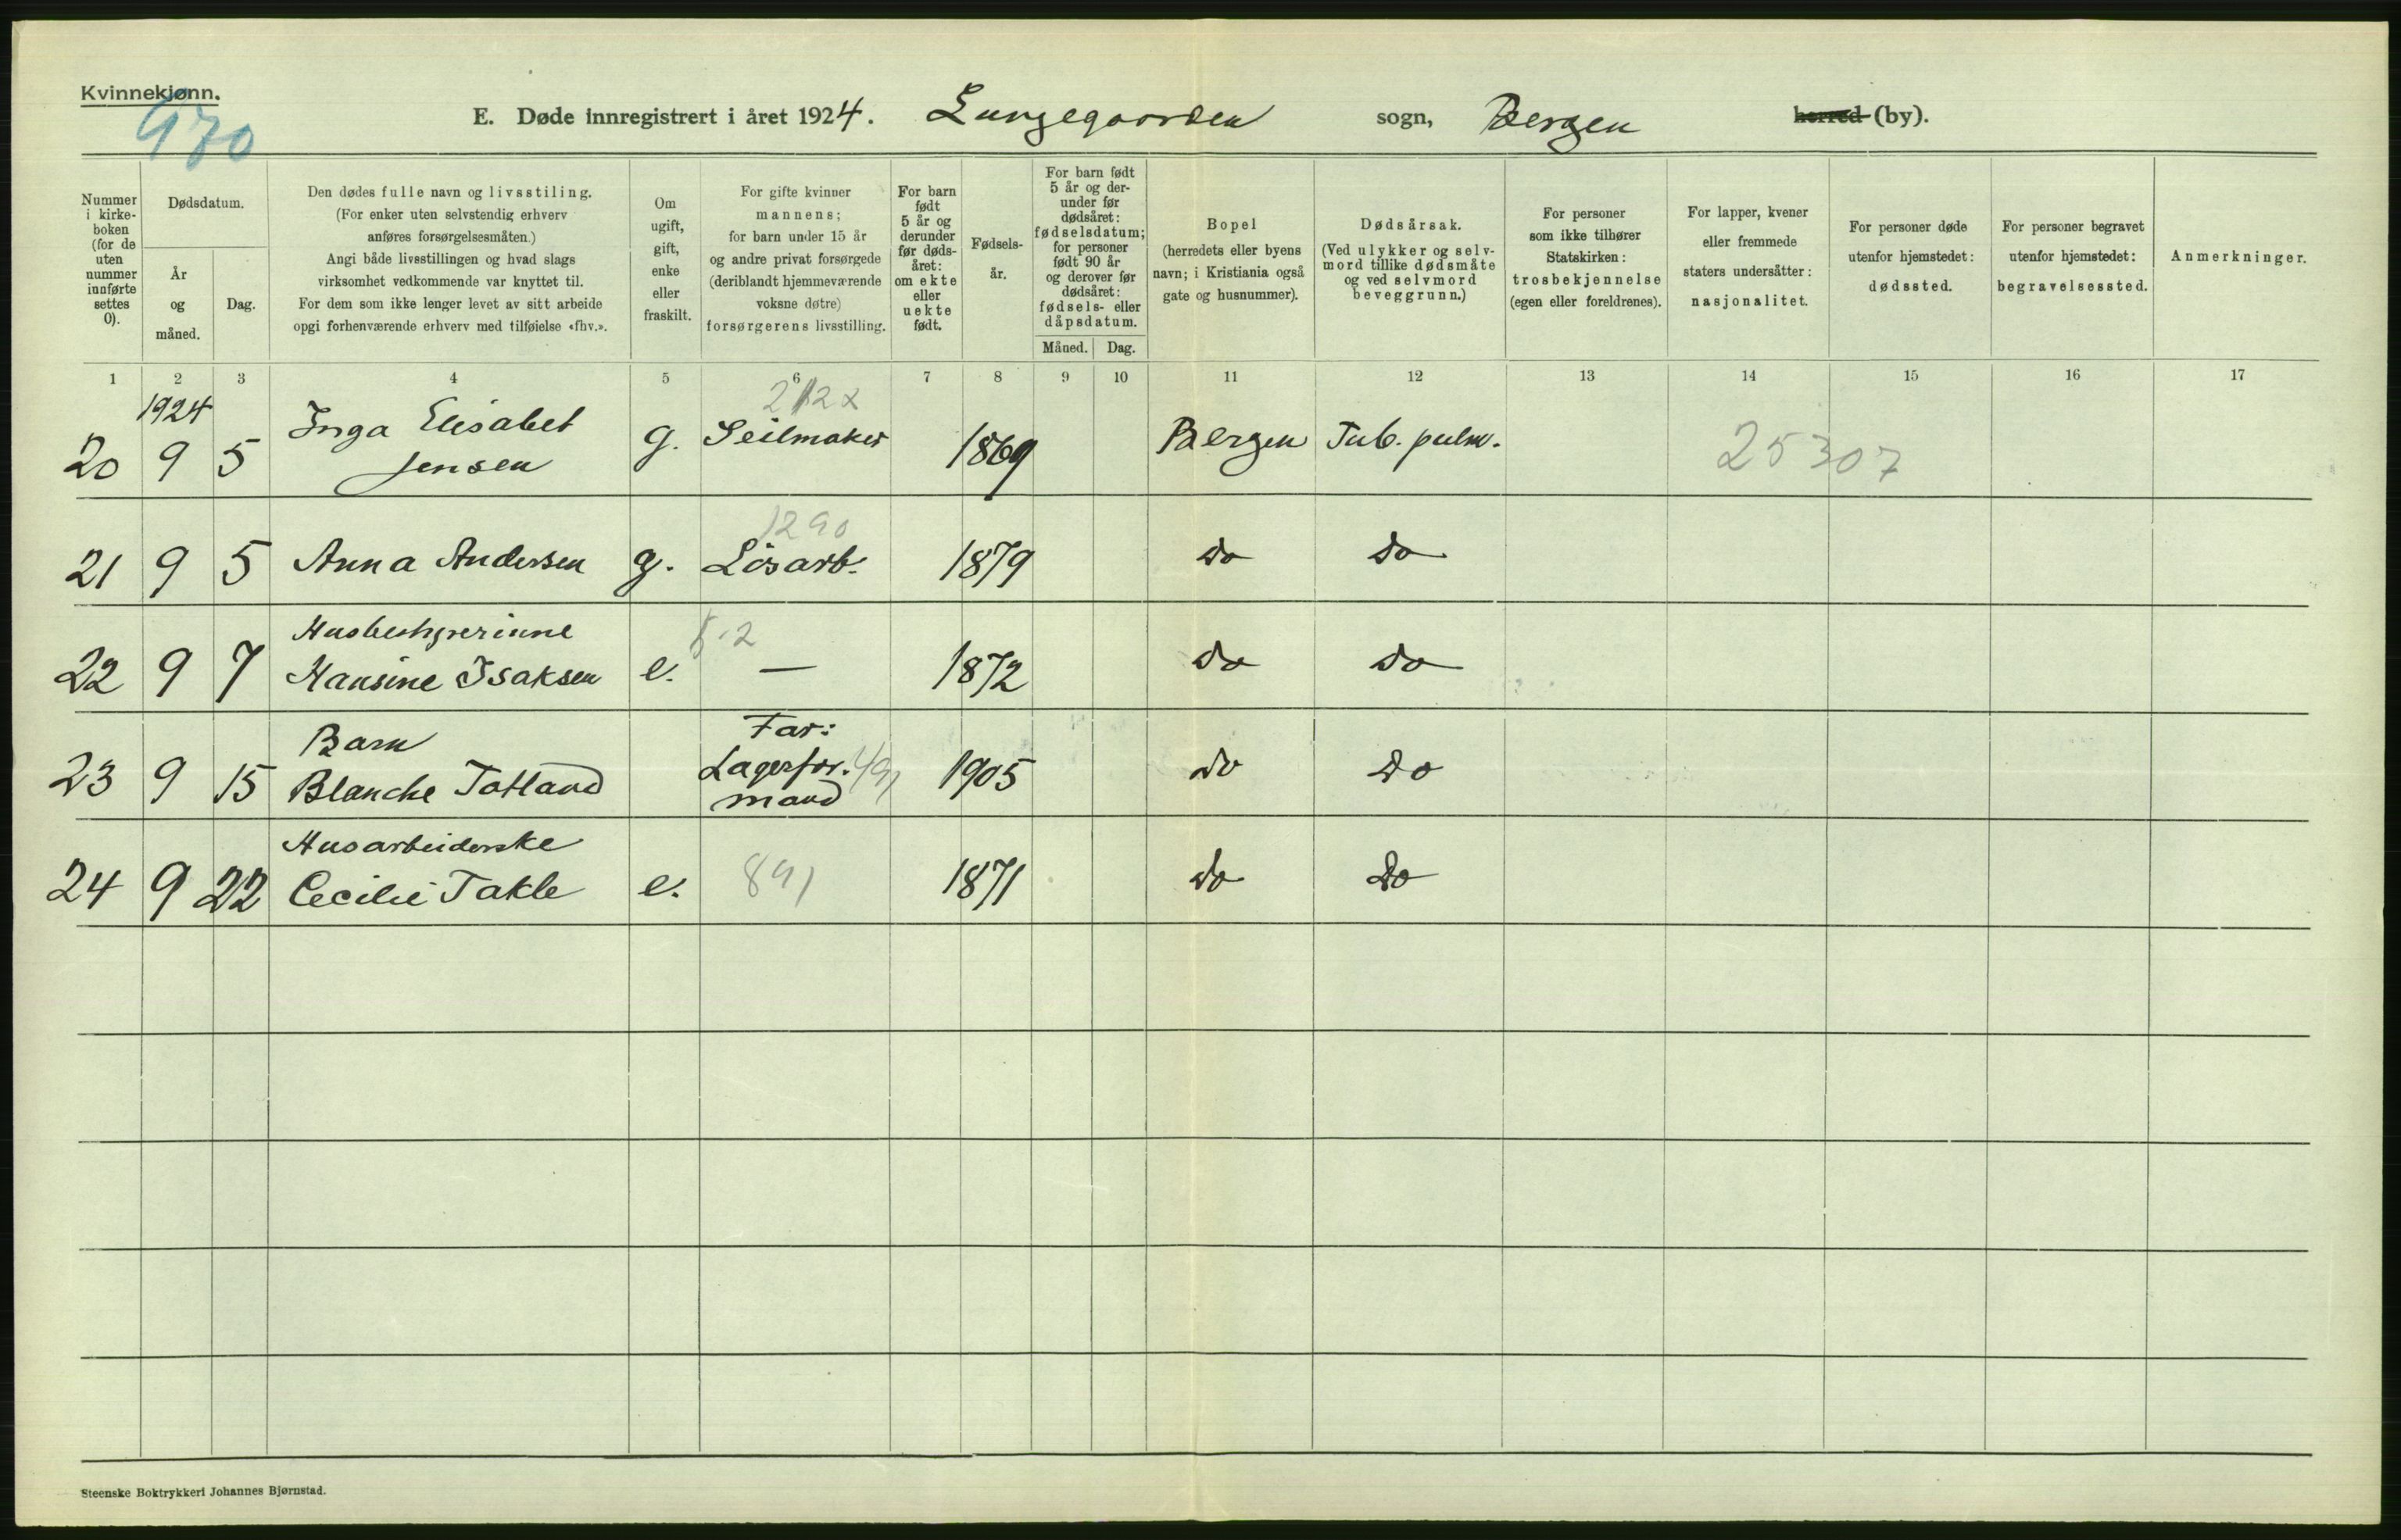 Kvinnekjønn.
970
E. Døde innregistrert i året 1924. Lungegaarden sogn, Bergen herred (by).
Nummer i kirke- boken (for de uten nummer innførte settes 0).
Dødsdatum.
År og måned.
Dag.
Den dødes fulle navn og livsstiling.
(For enker uten selvstendig erhverv
anføres forsørgelsesmåten.)
Angi både livsstillingen og hvad slags
virksomhet vedkommende var knyttet til.
For dem som ikke lenger levet av sitt arbeide
opgi forhenværende erhverv med tilføielse «fhv.».
Om
ugift,
gift,
enke
eller
fraskilt.
For gifte kvinner
mannens;
for barn under 15 år
og andre privat forsørgede
(deriblandt hjemmeværende
voksne døtre)
forsørgerens livsstilling.
For barn
født
5 år og
derunder
før døds-
året:
om ekte
eller
uekte
født.
Fødsels-
år.
For barn født
5 år og der-
under før
dødsåret:
fødselsdatum;
for personer
født 90 år
og derover før
dødsåret:
fødsels- eller
dåpsdatum.
Måned. Dag.
Bopel
(herredets eller byens
navn; i Kristiania også
gate og husnummer).
Dødsårsak.
(Ved ulykker og selv-
mord tillike dødsmåte
og ved selvmord
beveggrunn.)
For personer
som ikke tilhører
Statskirken:
trosbekjennelse
(egen eller foreldrenes).
For lapper, kvener
eller fremmede
staters undersåtter:
nasjonalitet.
For personer døde
utenfor hjemstedet:
dødssted.
For personer begravet
utenfor hjemstedet:
begravelsessted.
Anmerkninger.
1 2 3 4 5 6 7 8 9 10 11 12 13 14 15 16 17
1924
20 9 5 Inga Elisabet Jensen g. Seilmaker 1869 Bergen Tub. pulm. 25307
1290
21 9 5 Anna Andersen g. Løsarb. 1879 do do
Husbestyrerinne
22 9 7 Hansine Isaksen e. — 1872 do do
Barn Far:
23 9 15 Blanche Totland Lagerfor. mand 491 1905 do do
Husarbeiderske
24 9 22 Cecilie Takle e. 891 1871 do do
Steenske Boktrykkeri Johannes Bjørnstad.